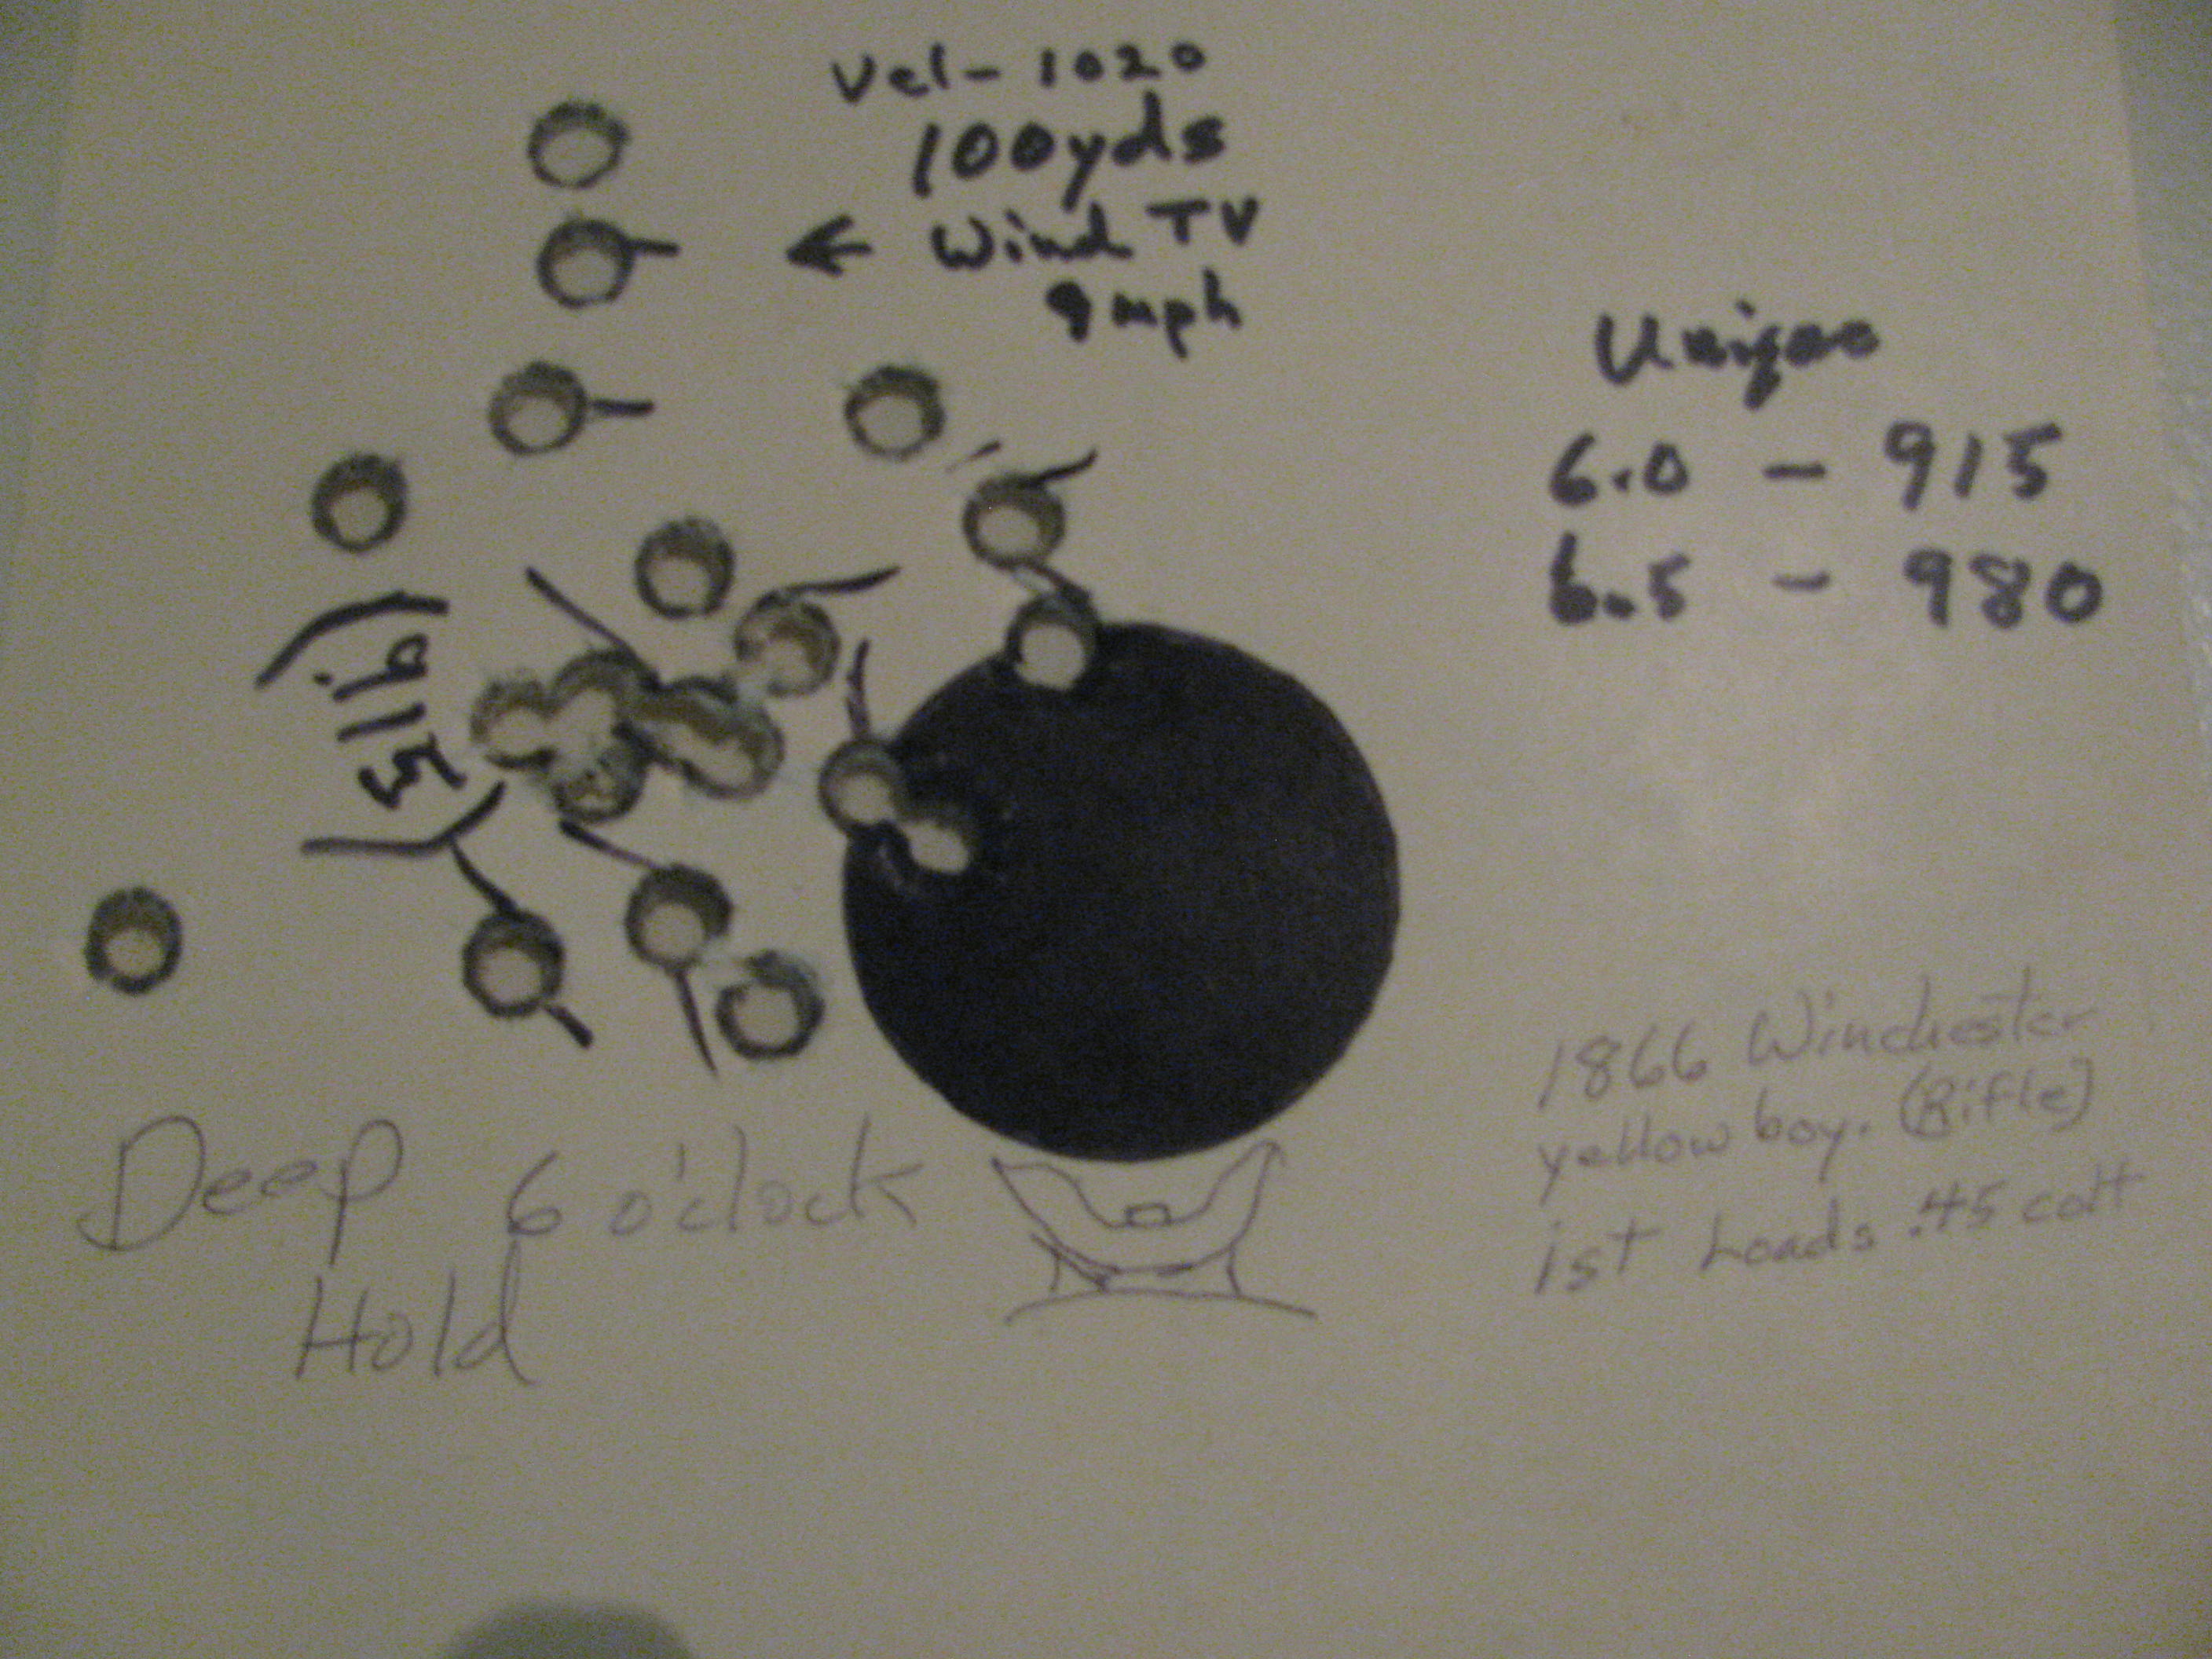 Vel - 1020
100yds
← Wind TV
9 mph
Unique
6.0 - 915
6.5 - 980
915
Deep 6 o'clock
Hold
1866 Winchester
yellow boy. (Rifle)
1st Loads .45 colt